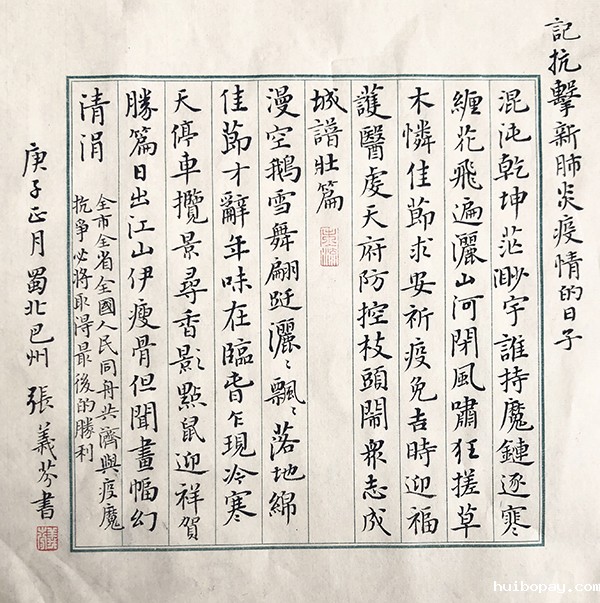 記抗擊新肺炎疫情的日子
混沌乾坤茫渺宇誰持魔鏈逐寒
纏花飛遍灑山河閉風嘯狂搓草
木憐佳節求安祈疫免吉時迎福
護醫虔天府防控枝頭鬧衆志成
城譜壯篇
漫空鵝雪舞翩躚灑灑飄飄落地綿
佳節才辭年味在臨春乍現冷寒
天停車攬景尋香影點鼠迎祥賀
勝篇日出江山伊瘦骨但聞畫幅幻
清涓
全市全省全國人民同舟共濟與疫魔
抗爭必將取得最後的勝利
庚子正月蜀北巴州張義芬書
huibopay.com